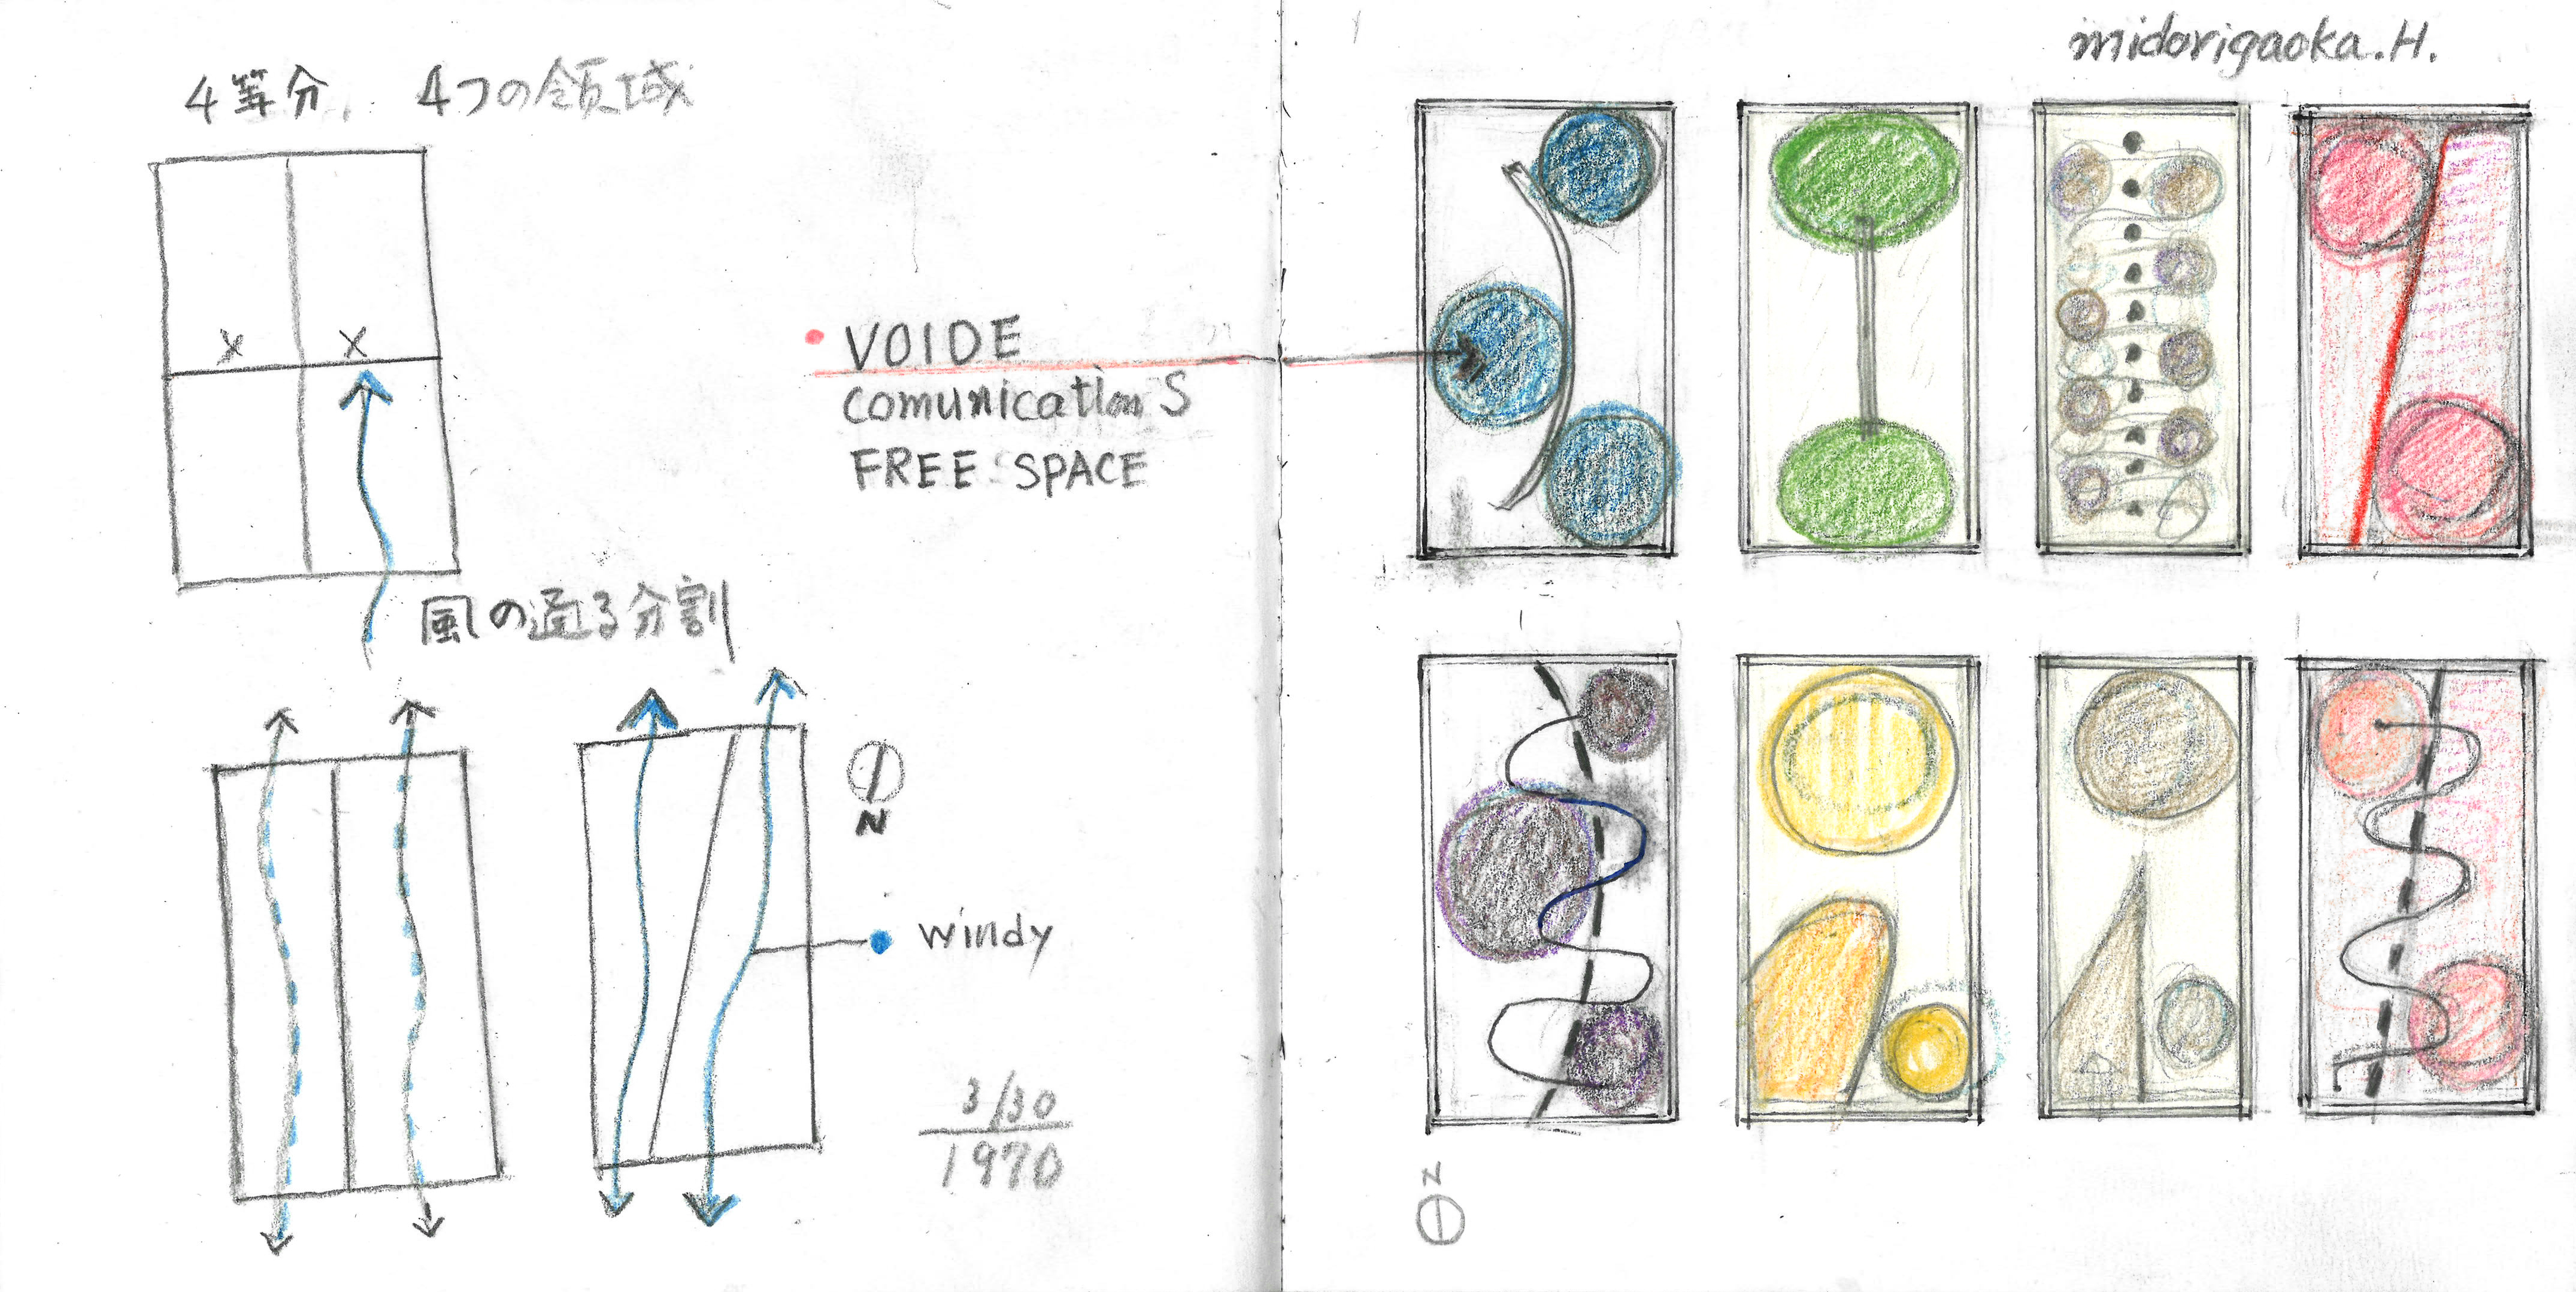 4等分 4つの領域
VOIDE
comunicationS
FREE SPACE
風の通る分割
N
windy
3/30
1970
midorigaoka.H.
N